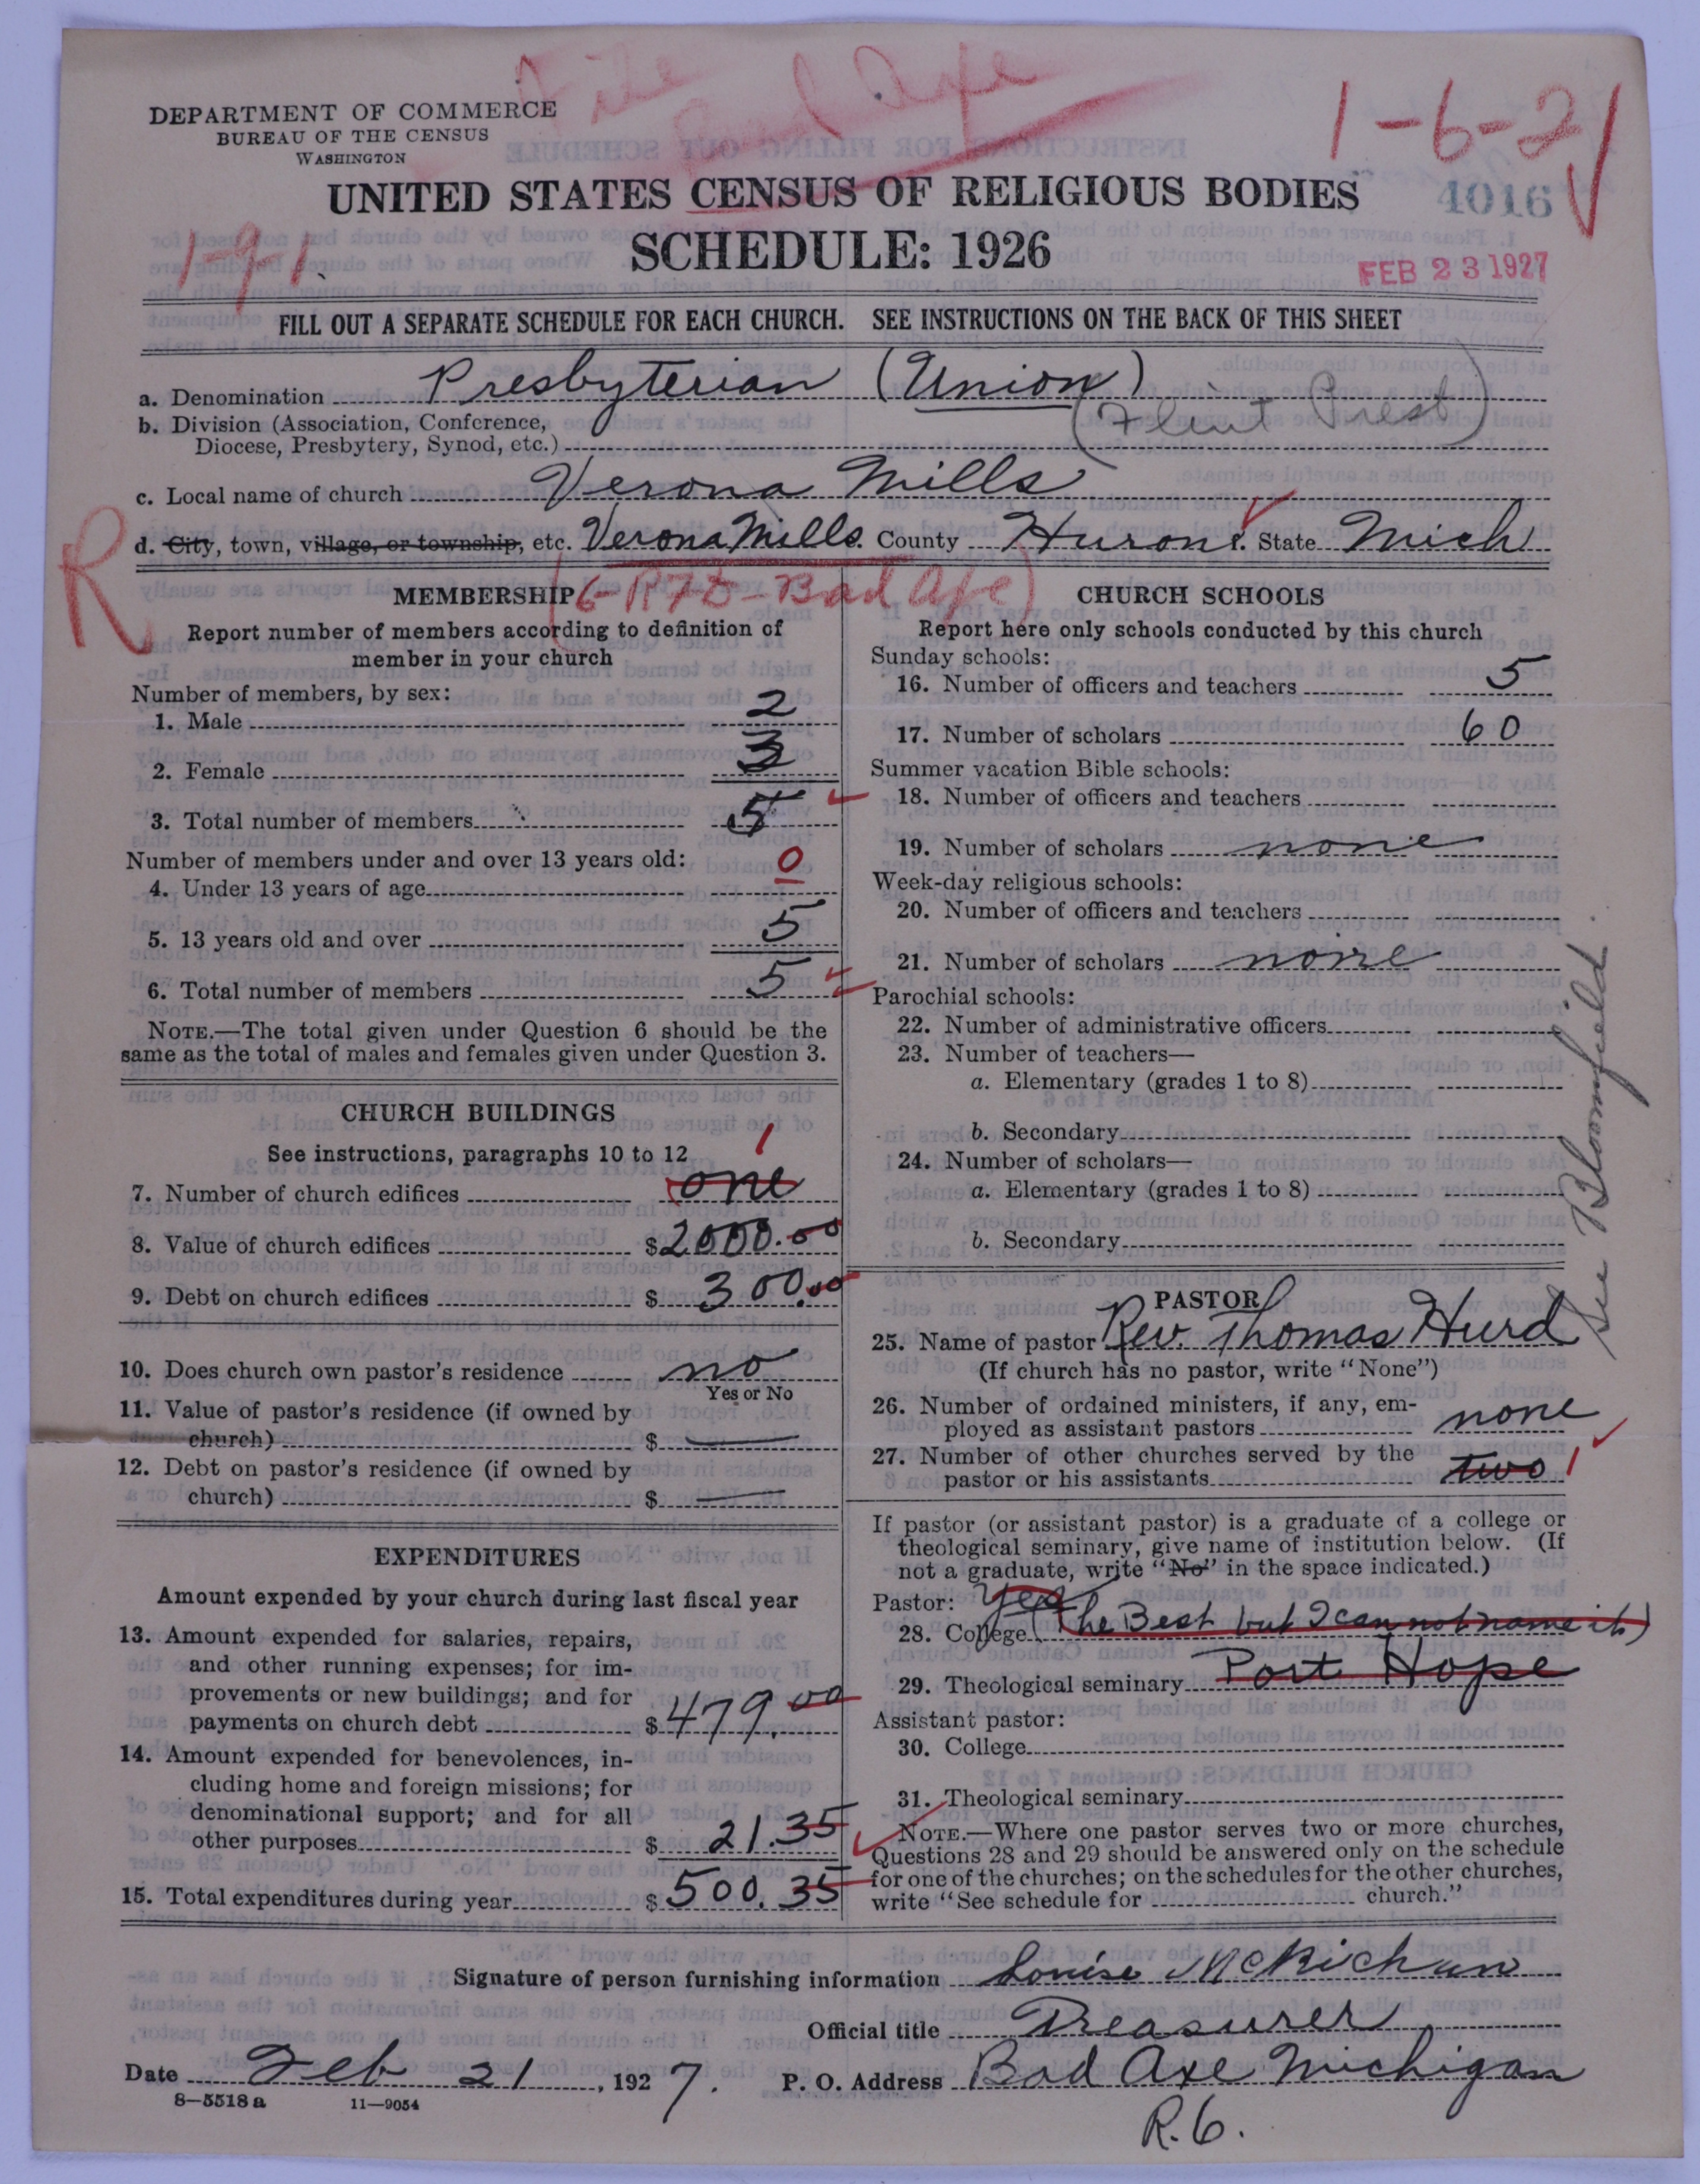 File
Bad Axe
1-6-21
DEPARTMENT OF COMMERCE
BUREAU OF THE CENSUS
WASHINGTON
UNITED STATES CENSUS OF RELIGIOUS BODIES
4016
SCHEDULE: 1926
1-9-1
FEB 23 1927
FILL OUT A SEPARATE SCHEDULE FOR EACH CHURCH. SEE INSTRUCTIONS ON THE BACK OF THIS SHEET
a. Denomination Presbyterian (Union)
b. Division (Association, Conference,
Diocese, Presbytery, Synod, etc.) (Flint Prest)
c. Local name of church Verona Mills
d. City, town, village, or township, etc. Verona Mills. County Huron. State Mich
R
(6-RFD-Bad Axe)
MEMBERSHIP
Report number of members according to definition of
member in your church
Number of members, by sex:
1. Male 2
2. Female 3
3. Total number of members 5
Number of members under and over 13 years old:
4. Under 13 years of age 0
5. 13 years old and over 5
6. Total number of members 5
NOTE.—The total given under Question 6 should be the
same as the total of males and females given under Question 3.
CHURCH BUILDINGS
See instructions, paragraphs 10 to 12
7. Number of church edifices one 1
8. Value of church edifices $2000.00
9. Debt on church edifices $ 300.00
10. Does church own pastor's residence no
Yes or No
11. Value of pastor's residence (if owned by
church) $ —
12. Debt on pastor's residence (if owned by
church) $ —
EXPENDITURES
Amount expended by your church during last fiscal year
13. Amount expended for salaries, repairs,
and other running expenses; for im-
provements or new buildings; and for
payments on church debt $479.00
14. Amount expended for benevolences, in-
cluding home and foreign missions; for
denominational support; and for all
other purposes $ 21.35
15. Total expenditures during year $500.35
CHURCH SCHOOLS
Report here only schools conducted by this church
Sunday schools:
16. Number of officers and teachers 5
17. Number of scholars 60
Summer vacation Bible schools:
18. Number of officers and teachers
19. Number of scholars none
Week-day religious schools:
20. Number of officers and teachers
21. Number of scholars none
Parochial schools:
22. Number of administrative officers
23. Number of teachers—
a. Elementary (grades 1 to 8)
b. Secondary
24. Number of scholars—
a. Elementary (grades 1 to 8)
b. Secondary
See Bloomfield.
PASTOR
25. Name of pastor Rev. Thomas Hurd
(If church has no pastor, write "None")
26. Number of ordained ministers, if any, em-
ployed as assistant pastors none
27. Number of other churches served by the
pastor or his assistants two 1
If pastor (or assistant pastor) is a graduate of a college or
theological seminary, give name of institution below. (If
not a graduate, write "No" in the space indicated.)
Pastor: Yes
28. College (The Best but I can not name it)
29. Theological seminary Port Hope
Assistant pastor:
30. College
31. Theological seminary
NOTE.—Where one pastor serves two or more churches,
Questions 28 and 29 should be answered only on the schedule
for one of the churches; on the schedules for the other churches,
write "See schedule for church."
Signature of person furnishing information Louise McKichan
Official title Treasurer
Date Feb 21, 1927. P. O. Address Bad Axe Michigan
8-5518 a 11-9054
R.6.